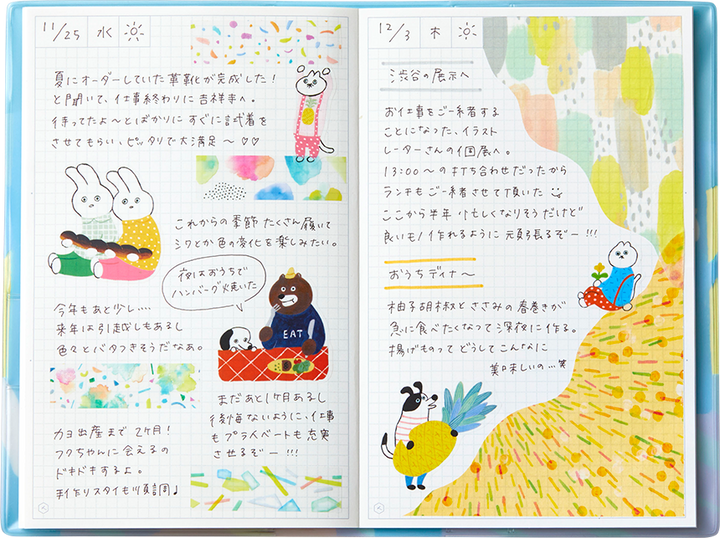 11/25 水
夏にオーダーしていた革靴が完成した!
と聞いて、仕事終わりに吉祥寺へ。
待ってたよ〜とばかりに すぐに試着を
させてもらい、ピッタリで大満足〜♡♡
これからの季節 たくさん履いて
シワとか色の変化を楽しみたい。
夜はおうちで
ハンバーグ焼いた
EAT
今年もあと少し....
来年は引越しもあるし
色々とバタつきそうだなあ。
まだあと1ヶ月あるし
後悔ないように、仕事
もプライベートも充実
させるぞー!!!
カヨ出産まで2ヶ月!
フクちゃんに会えるの
ドキドキするよ。
手作りスタイも順調♪
12/3 木
渋谷の展示へ
お仕事をご一緒する
ことになった、イラスト
レーターさんの個展へ。
13:00〜の打ち合わせだったから
ランチもご一緒させて頂いた
ここから半年 忙しくなりそうだけど
良いもの作れるように 頑張るぞー!!!
おうちディナ〜
柚子胡椒とささみの春巻きが
急に食べたくなって深夜に作る。
揚げものって どうしてこんなに
美味しいの...笑